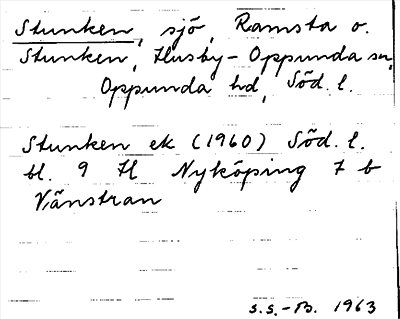 Stunken, sjö, Ramsta o.
Stunken, Husby-Oppunda sn,
Oppunda hd, Söd. l.
Stunken ek (1960) Söd. l.
bl. 9 H Nyköping 7 b
Vänstran
S.S.-B. 1963